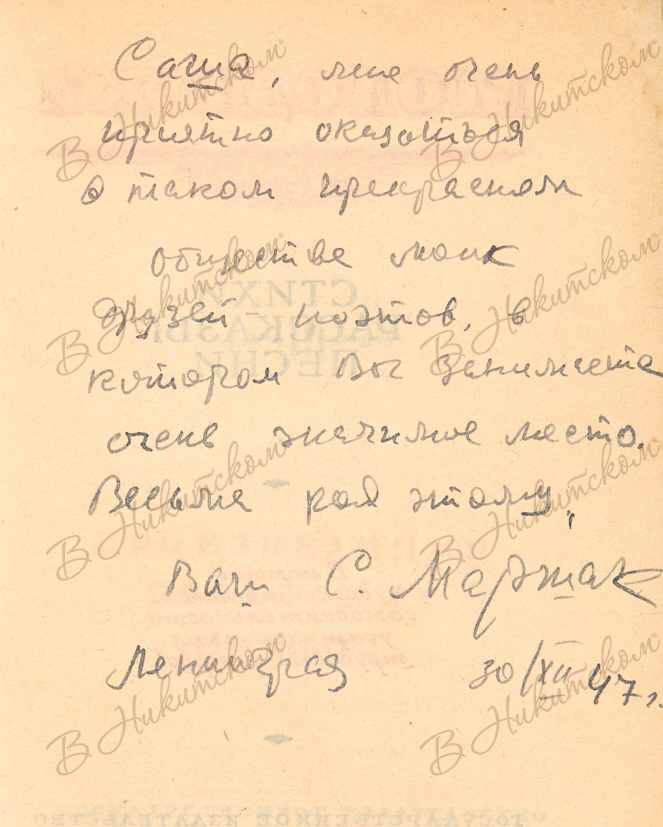 Саша, мне очень
приятно оказаться
в таком прекрасном
обществе моих
друзей-поэтов, в
котором Вы занимаете
очень значимое место.
Весьма рад этому,
Ваш С. Маршак
Ленинград 30/XII 47 г.
В Никитском
В Никитском
В Никитском
В Никитском
В Никитском
В Никитском
В Никитском
В Никитском
СТИХИ
РАССКАЗЫ
ПЕСНИ
ГОСУДАРСТВЕННОЕ ИЗДАТЕЛЬСТВО